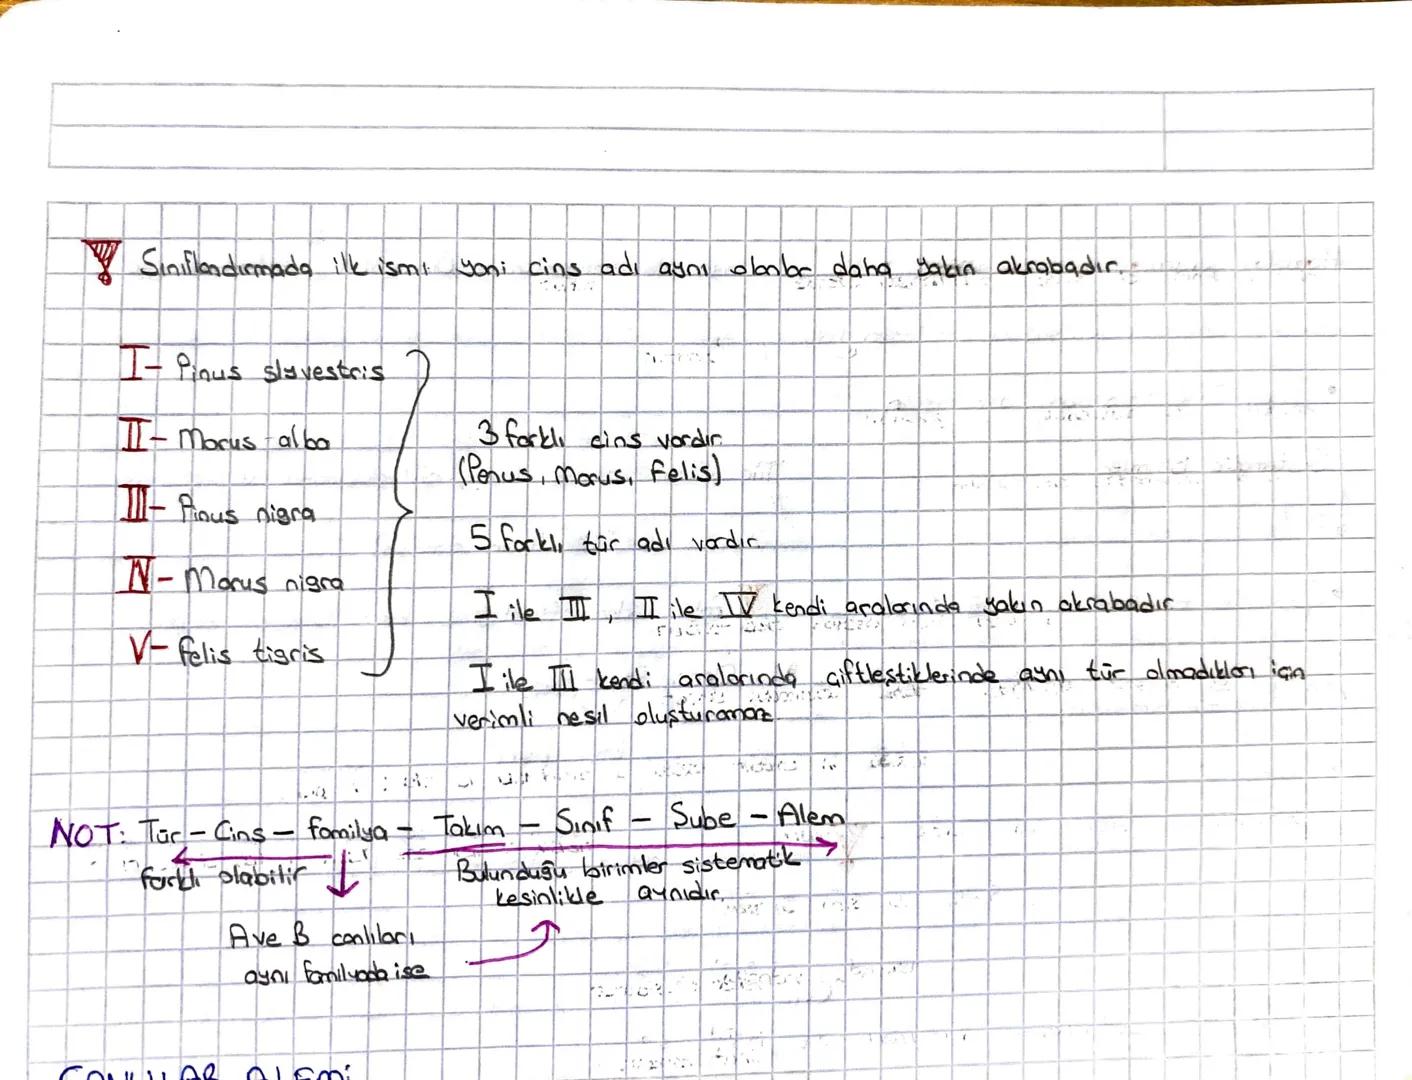 Sınıflandırmada ilk ismi yani cins adı aynı olanlar daha yakın akrabadır.
I- Pinus slyvestris
II- Morus alba
III- Pinus nigra
IV- Morus nigra
V- Felis tigris
3 farklı cins vardır
(Penus, Morus, Felis)
5 farklı tür adı vardır.
I ile III, II ile IV kendi aralarında yakın akrabadır
I ile III kendi aralarında çiftleştiklerinde aynı tür olmadıkları için
verimli nesil oluşturamaz
NOT: Tür - Cins - familya - Takım - Sınıf - Şube - Alem
farklı olabilir
Bulunduğu birimler sistematik
kesinlikle aynıdır.
A ve B canlıları
aynı familyada ise
CANLILAR ALEMİ